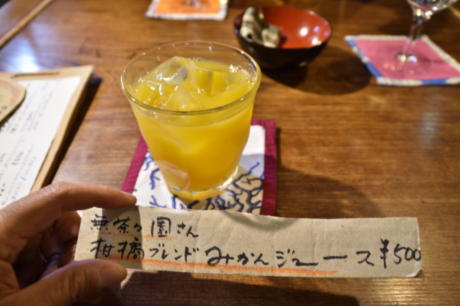 無茶々園さん
柑橘ブレンドみかんジュース ¥500